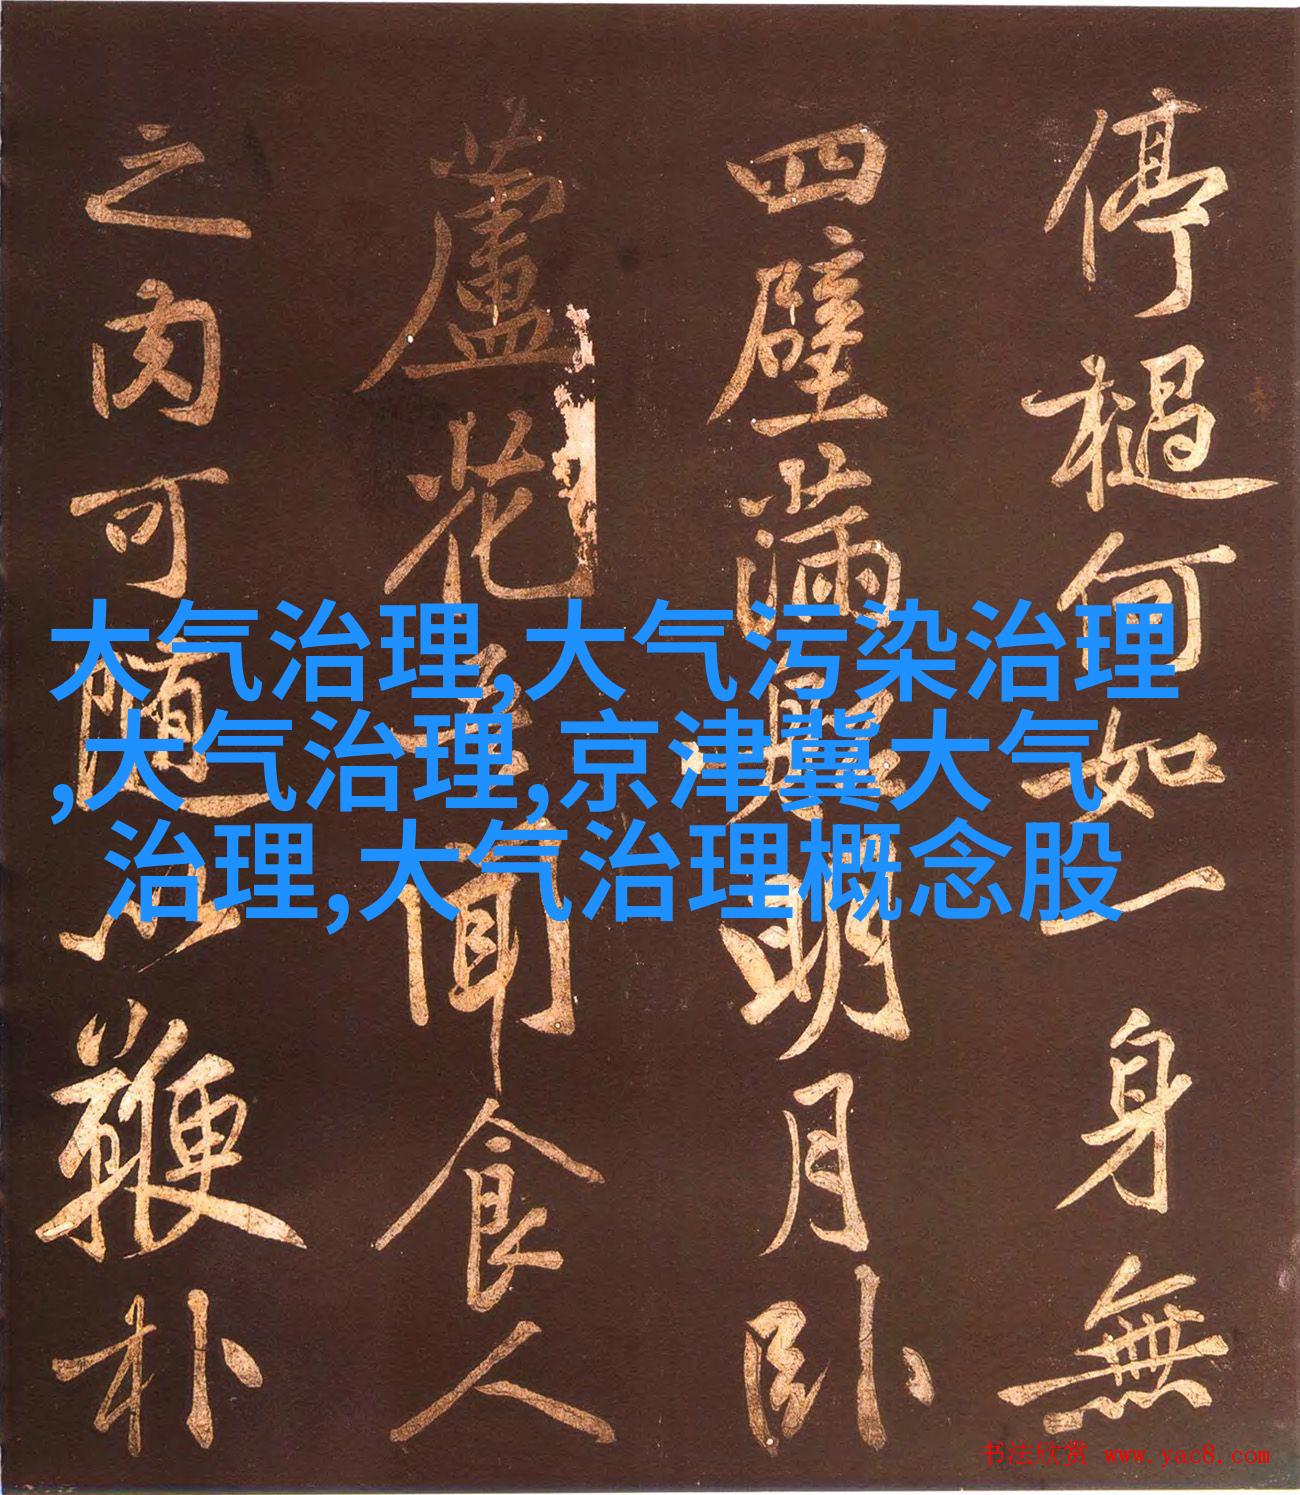 停檛何如一身無
四壁滿明月卧
蘆花聞食人
之肉可隨以鞭朴
大气治理,大气污染治理
,大气治理,京津冀大气
治理,大气治理概念股
书法欣赏 www.yac8.com